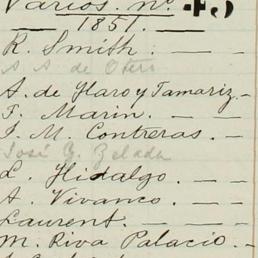 Varios. no. 45
1851.
R. Smith. — —
A. A. de Otero
A. de Haro y Tamariz. —
F. Marin. — —
J. M. Contreras. —
José G. Zelada
L. Hidalgo. — —
A. Vivanco. — —
Laurent. — —
M. Riva Palacio. —